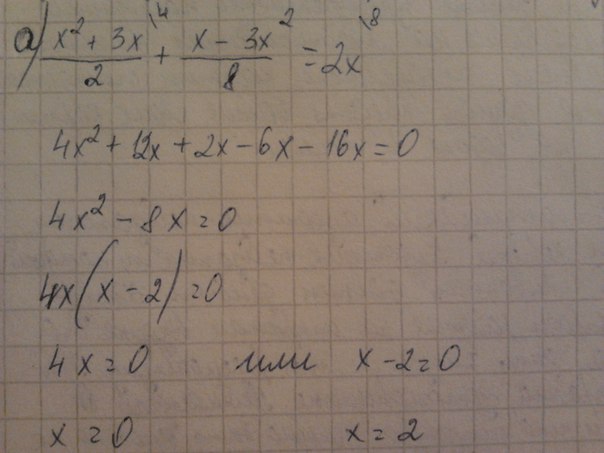 а) (x² + 3x)/2 \4 + (x - 3x²)/8 = 2x \8
4x² + 12x + 2x - 6x - 16x = 0
4x² - 8x = 0
4x(x - 2) = 0
4x = 0 или x - 2 = 0
x = 0 x = 2